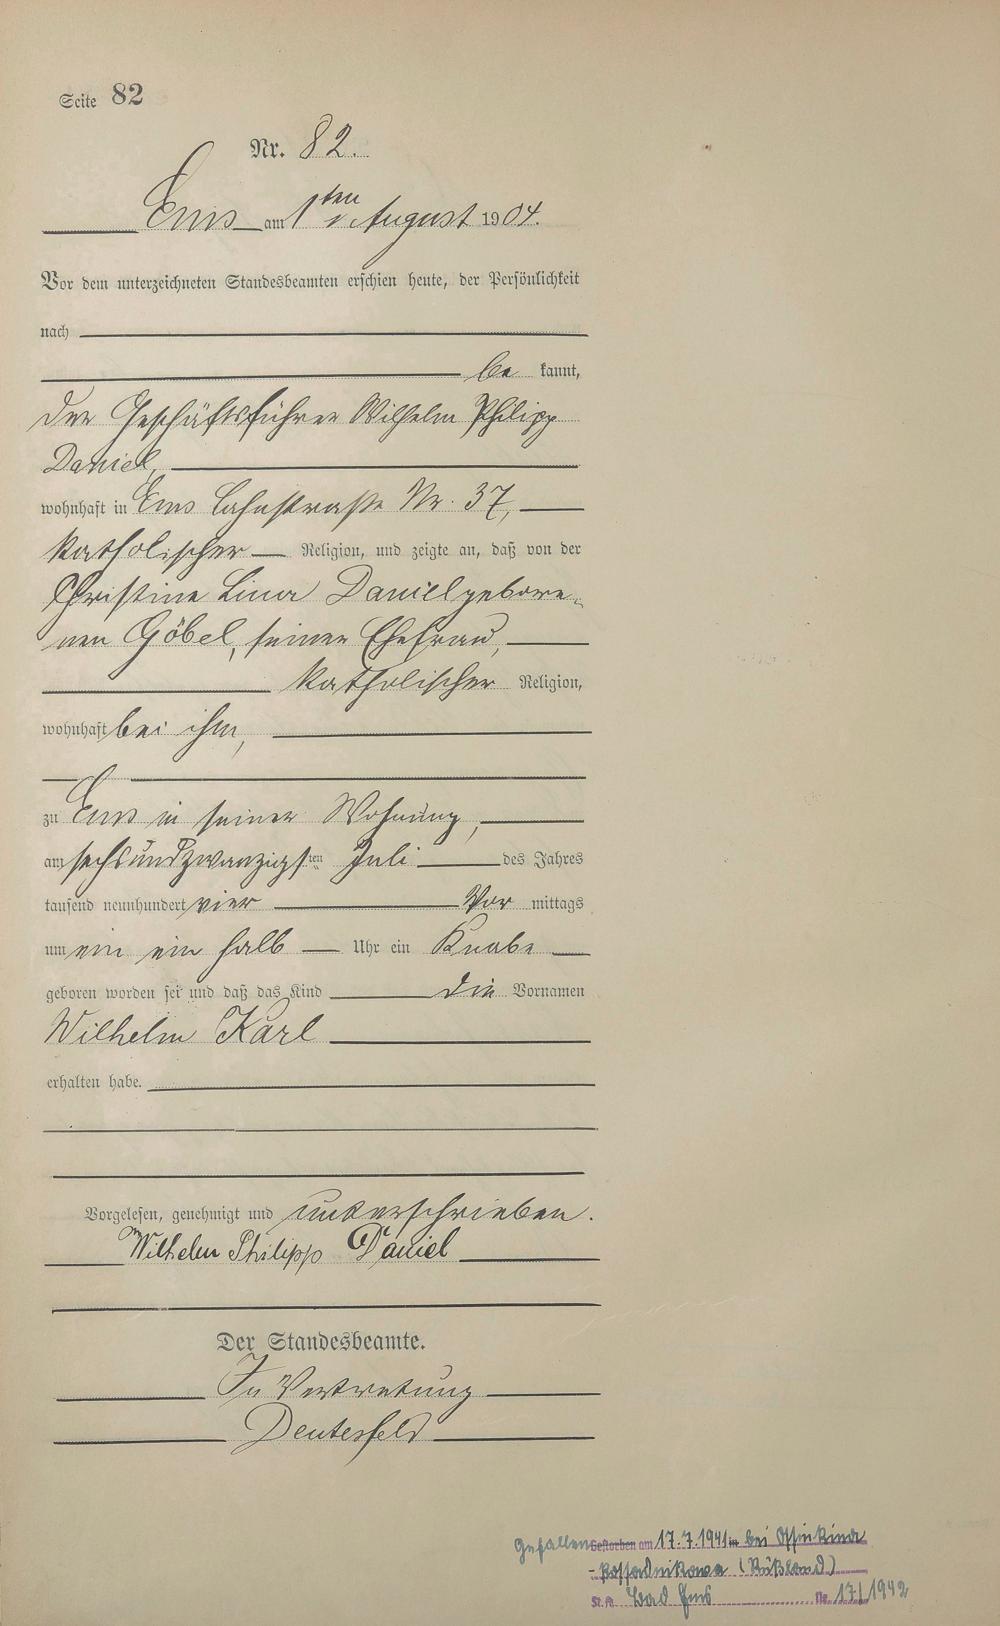 Seite 82
Nr. 82.
Ems am 1ten August 1904.
Vor dem unterzeichneten Standesbeamten erschien heute, der Persönlichkeit
nach
be kannt,
der Geschäftsführer Wilhelm Philipp
Daniel,
wohnhaft in Ems Lahnstraße Nr. 37,
katholischer Religion, und zeigte an, daß von der
Christine Lina Daniel gebore-
nen Göbel, seiner Ehefrau,
katholischer Religion,
wohnhaft bei ihm,
zu Ems in seiner Wohnung,
am sechsundzwanzigsten Juli des Jahres
tausend neunhundert vier Vor mittags
um ein ein halb Uhr ein Knabe
geboren worden sei und daß das Kind die Vornamen
Wilhelm Karl
erhalten habe.
Vorgelesen, genehmigt und unterschrieben.
Wilhelm Philipp Daniel
Der Standesbeamte.
In Vertretung
Deutesfeld
Gefallen Gestorben am 17.7.1941 in bei
(Rußland)
St.A. Bad Ems Nr. 171/1942